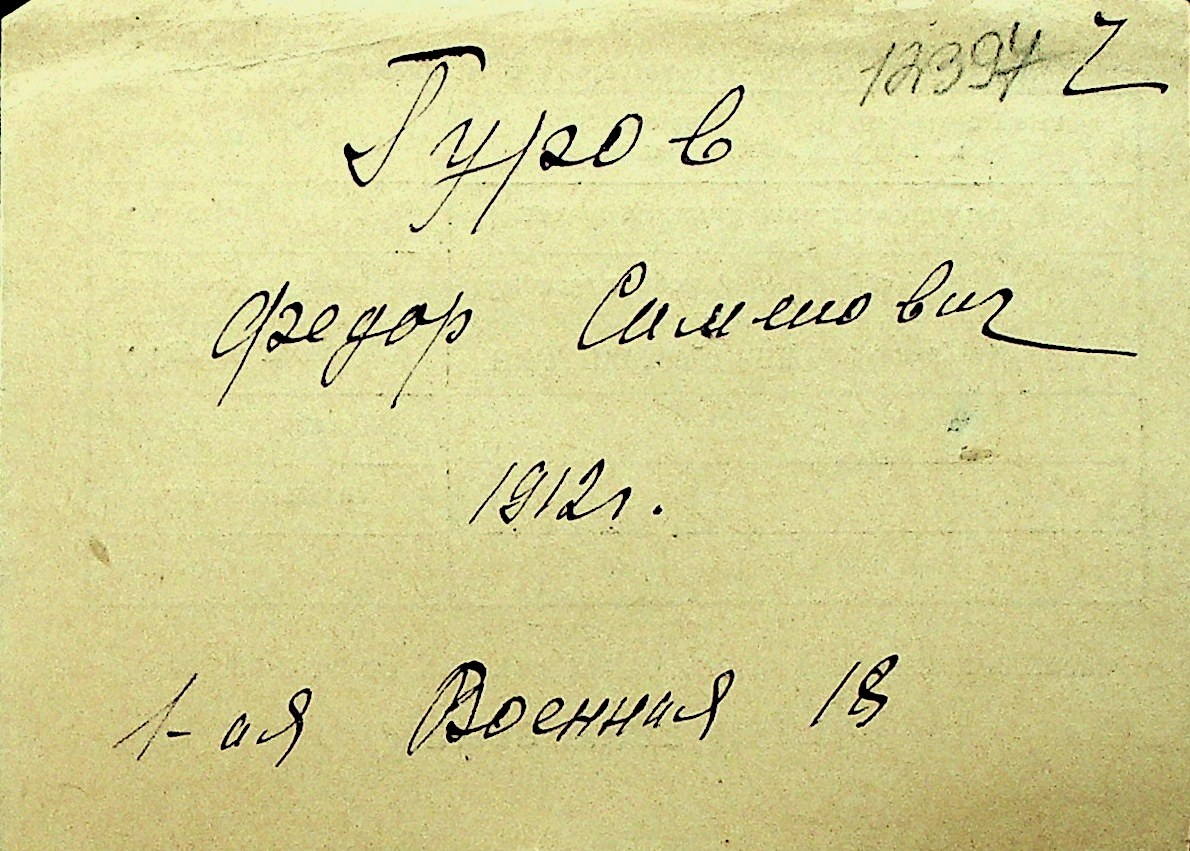 12394 Ч
Гуров
Федор Сименович
1912г.
1-ая Военная 18